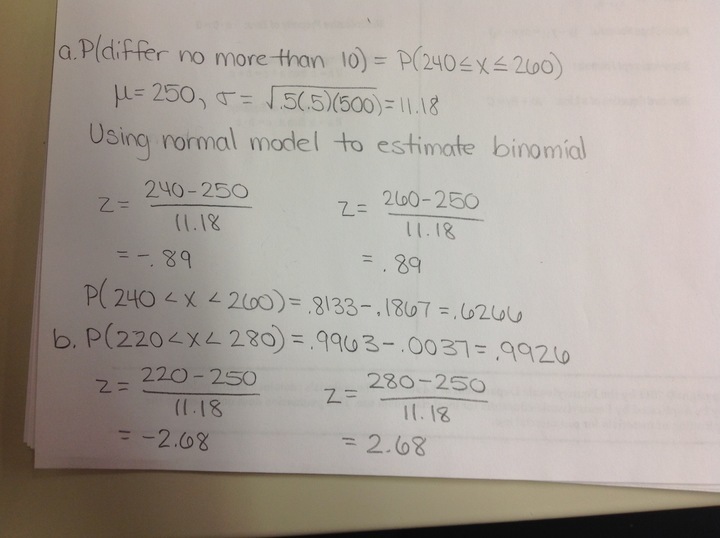 a. P(differ no more than 10) = P(240≤x≤260)
μ=250, σ=√.5(.5)(500)=11.18
Using normal model to estimate binomial
z= 240-250/11.18 z= 260-250/11.18
=-.89 =.89
P(240<x<260)=.8133-.1867=.6266
b. P(220<x<280)=.9963-.0037=.9926
z= 220-250/11.18 z= 280-250/11.18
=-2.68 =2.68